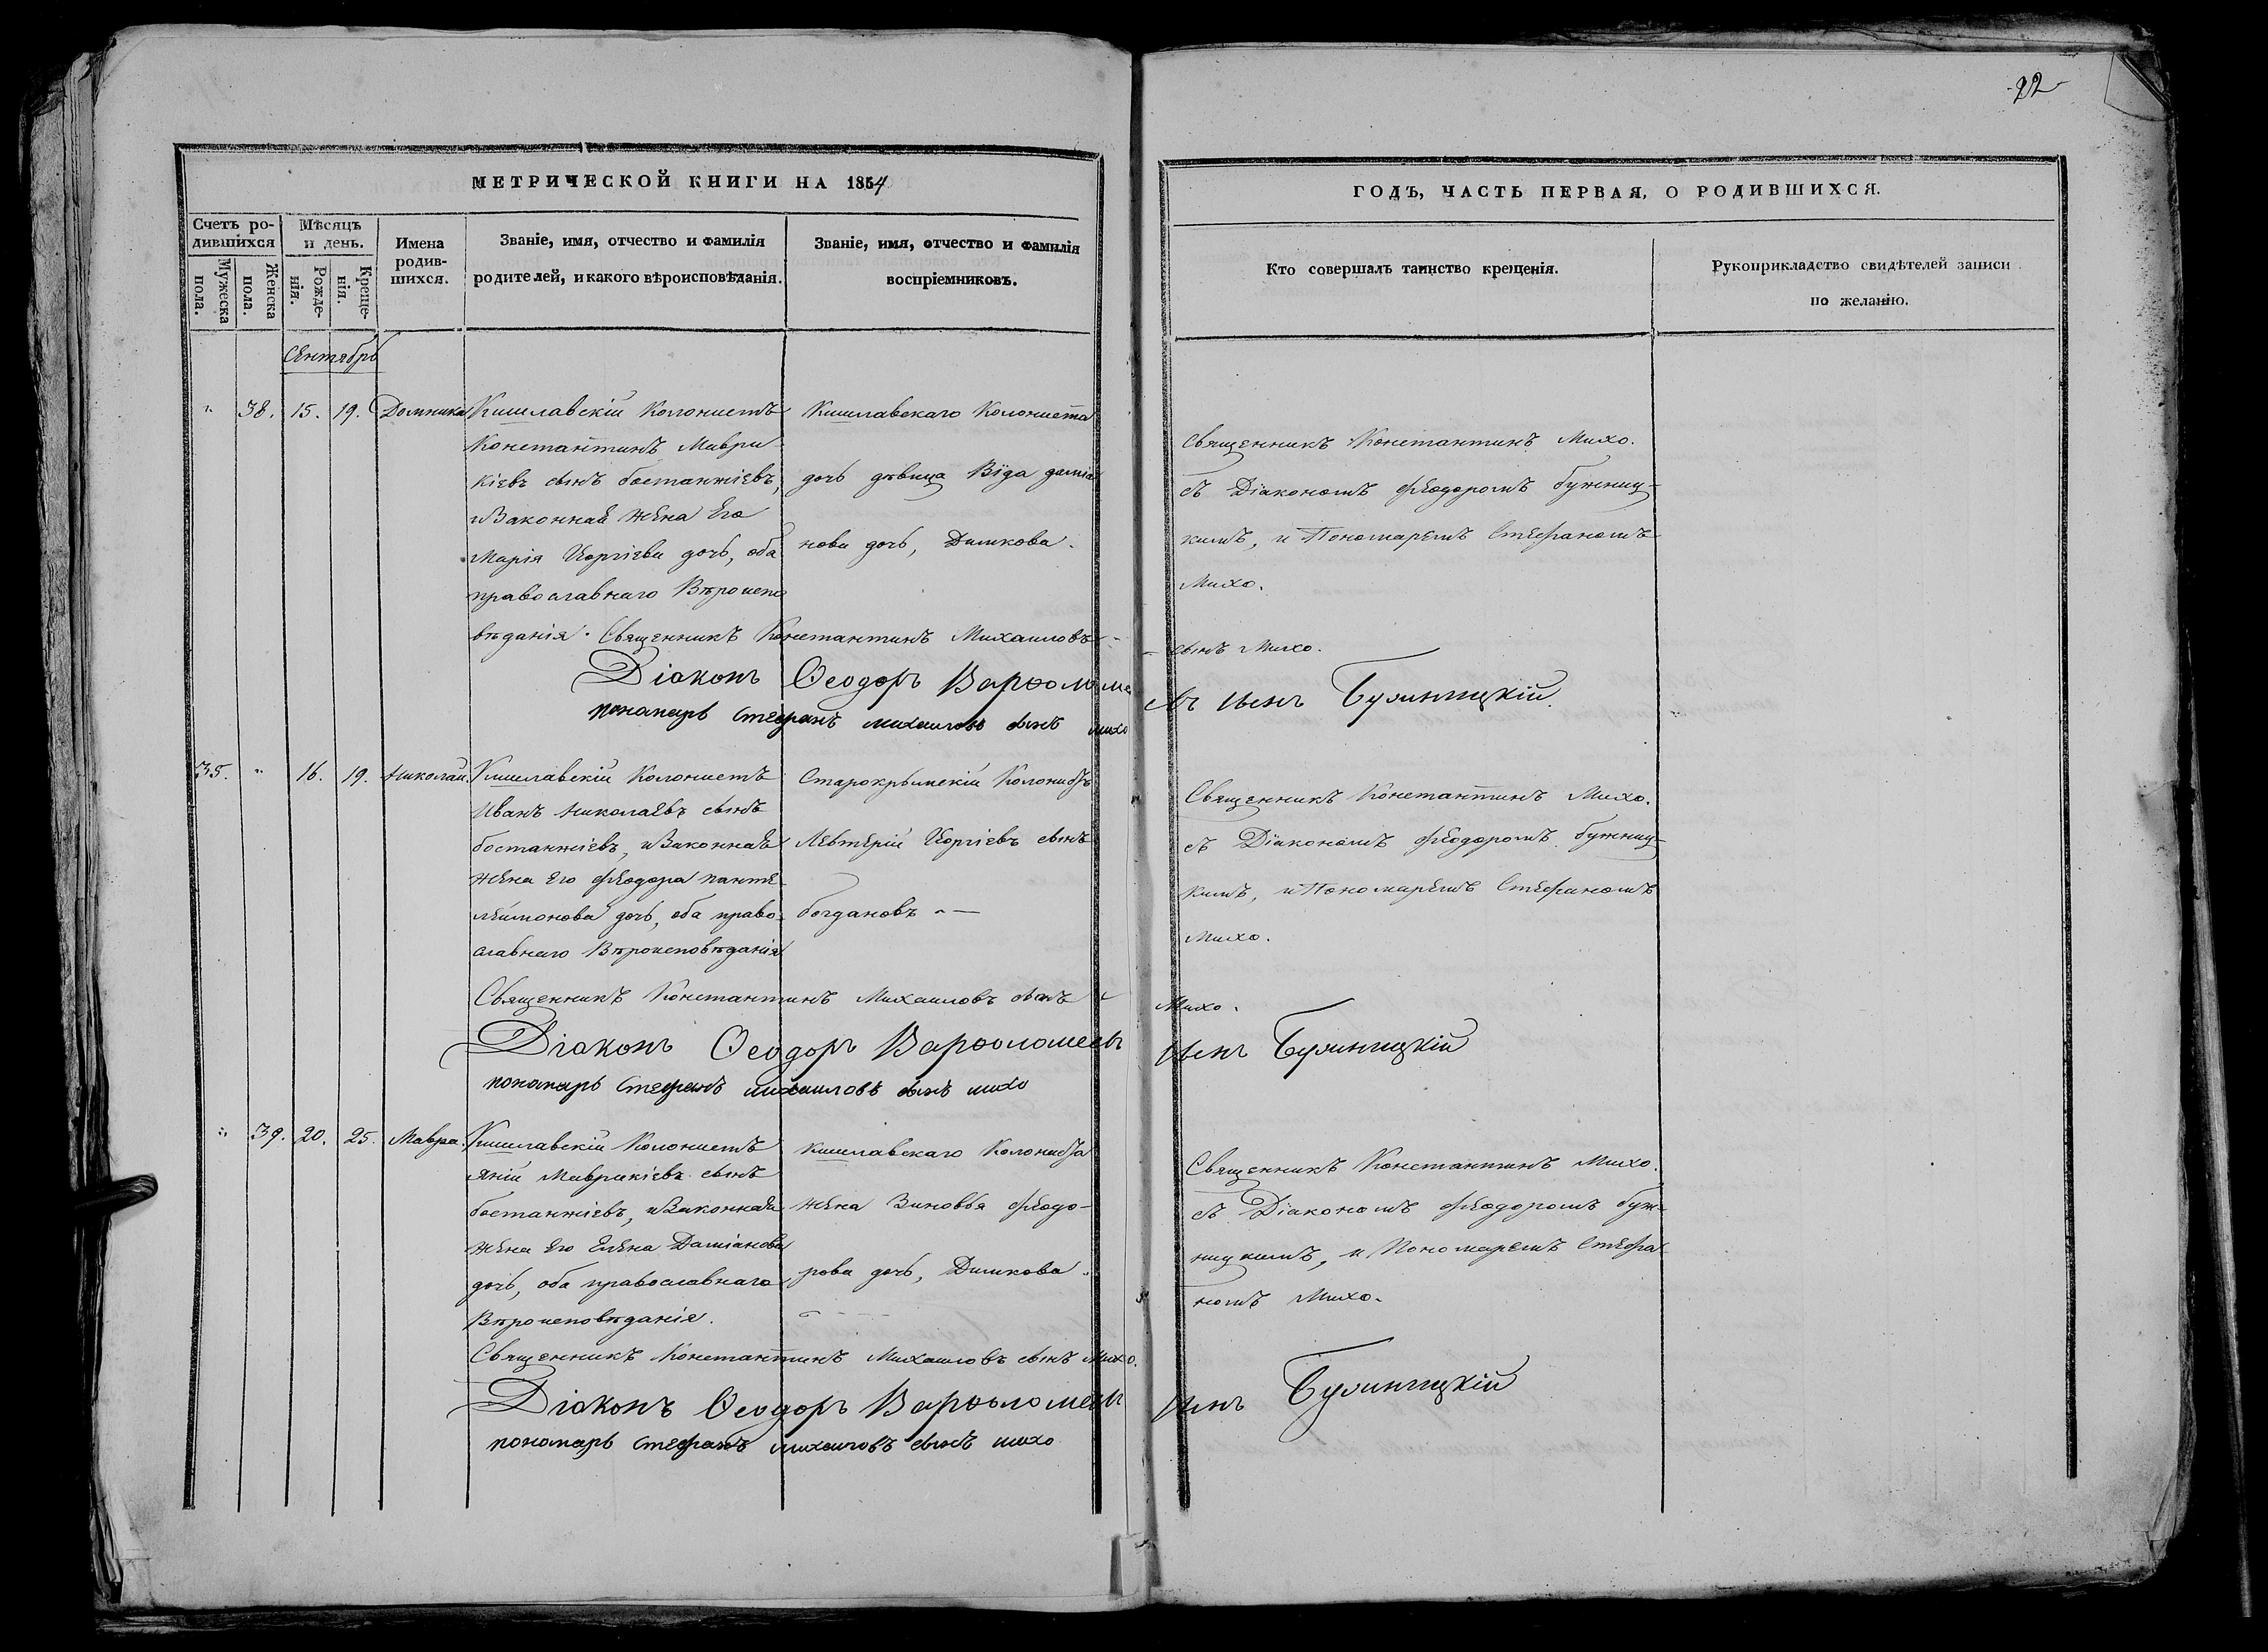 22
МЕТРИЧЕСКОЙ КНИГИ НА 1854
ГОДЪ, ЧАСТЬ ПЕРВАЯ, О РОДИВШИХСЯ.
Счетъ родившихся
Мужеска пола.
Женска пола.
Мѣсяцъ и день.
Рожденія.
Крещенія.
Имена родившихся.
Званіе, имя, отчество и фамилія
родителей, и какого вѣроисповѣданія.
Званіе, имя, отчество и фамилія
воспріемниковъ.
Кто совершалъ таинство крещенія.
Рукоприкладство свидѣтелей записи
по желанію.
Сентябрь
" 38. 15. 19. Домника
Кишлавскій Колонистъ
Константинъ Маври-
кіевъ сынъ бостанжіевъ,
и Законная жена Его
Марія Георгіева дочь, оба
православнаго Вѣроиспо
вѣданія.
Кишлавскаго Колониста
дочь дѣвица Віда даміа
нова дочь, Димкова.
Священникъ Константинъ Михо.
съ Діакономъ феодоромъ бужниц-
кимъ, и Пономаремъ Стефаномъ
Михо.
Священникъ Константинъ Михаиловъ сынъ Михо.
Діаконъ Ѳеодоръ Варѳоломеевъ сынъ Бужницкій.
понамарь стефанъ михаиловъ сынъ михо
35. " 16. 19. Николай.
Кишлавскій Колонистъ
Иванъ Николаевъ сынъ
бостанжіевъ, и Законная
жена Его феодора панте-
леимонова дочь, оба право-
славнаго Вѣроисповѣданія
Старокрымскій Колонистъ
Левтерій Георгіевъ сынъ
богдановъ
Священникъ Константинъ Михо.
съ Діакономъ феодоромъ бужниц-
кимъ, и Пономаремъ Стефаномъ
Михо.
Священникъ Константинъ Михаиловъ сынъ Михо.
Діаконъ Ѳеодоръ Варѳоломеевъ сынъ Бужницкій
понамарь стефанъ михаиловъ сынъ михо
" 39. 20. 25. Мавра.
Кишлавскій Колонистъ
Яній Маврикіевъ сынъ
бостанжіевъ, и Законная
жена Его Елена Даміанова
дочь, оба православнаго
Вѣроисповѣданія.
Кишлавскаго Колониста
жена Зиновья феодо-
рова дочь, Димкова.
Священникъ Константинъ Михо.
съ Діакономъ феодоромъ буж-
ницкимъ, и Пономаремъ Стефа
номъ Михо.
Священникъ Константинъ Михаиловъ сынъ Михо.
Діаконъ Ѳеодоръ Варѳоломеевъ сынъ Бужницкій
пономарь стефанъ михаиловъ сынъ михо